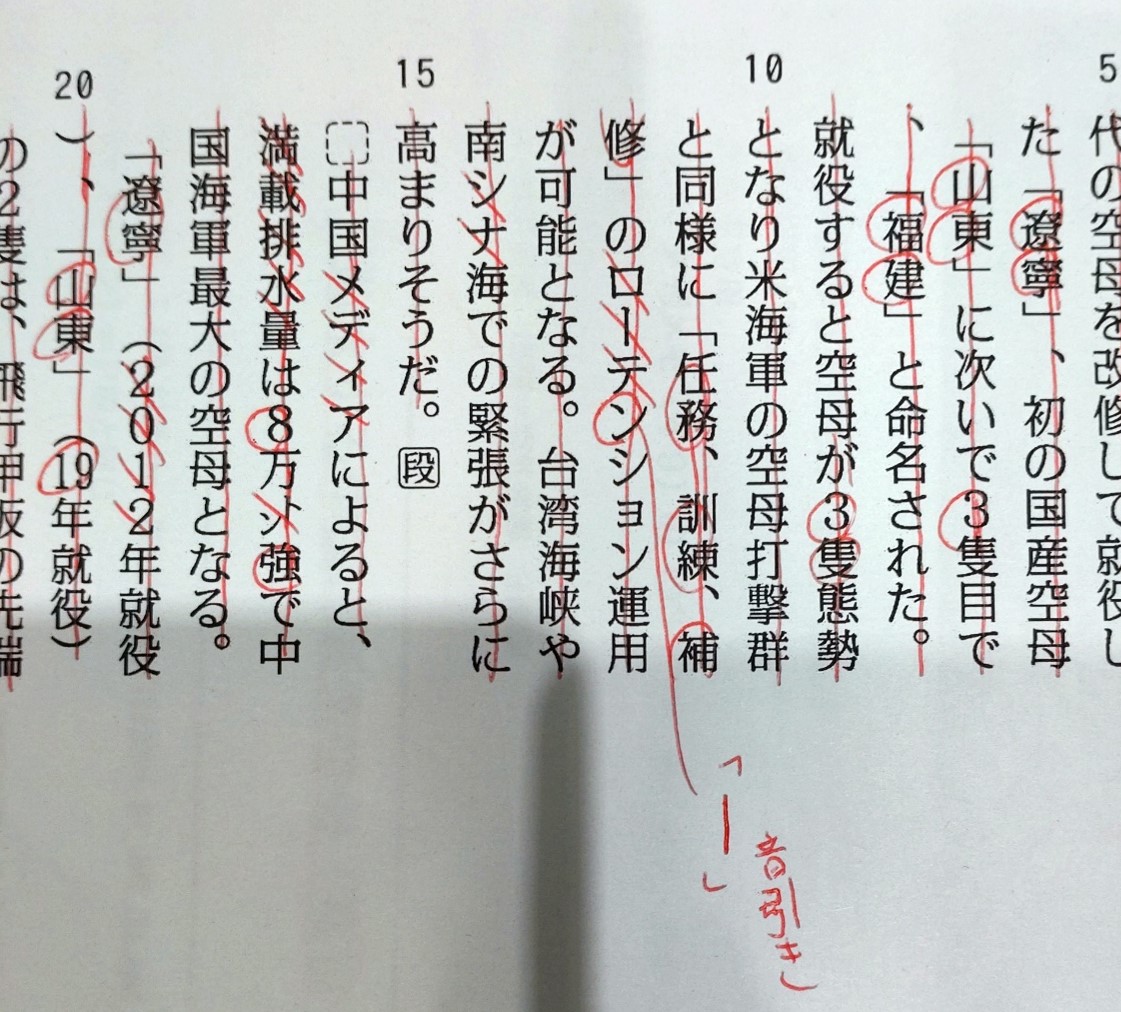 5
代の空母を改修して就役し
た「遼寧」、初の国産空母
「山東」に次いで3隻目で
、「福建」と命名された。
就役すると空母が3隻態勢
10
となり米海軍の空母打撃群
と同様に「任務、訓練、補
修」のローテンション運用
が可能となる。台湾海峡や
南シナ海での緊張がさらに
15
高まりそうだ。段
中国メディアによると、
満載排水量は8万㌧強で中
国海軍最大の空母となる。
「遼寧」（2012年就役
20
）、「山東」（19年就役）
の2隻は、飛行甲板の先端
「ー」
音引き